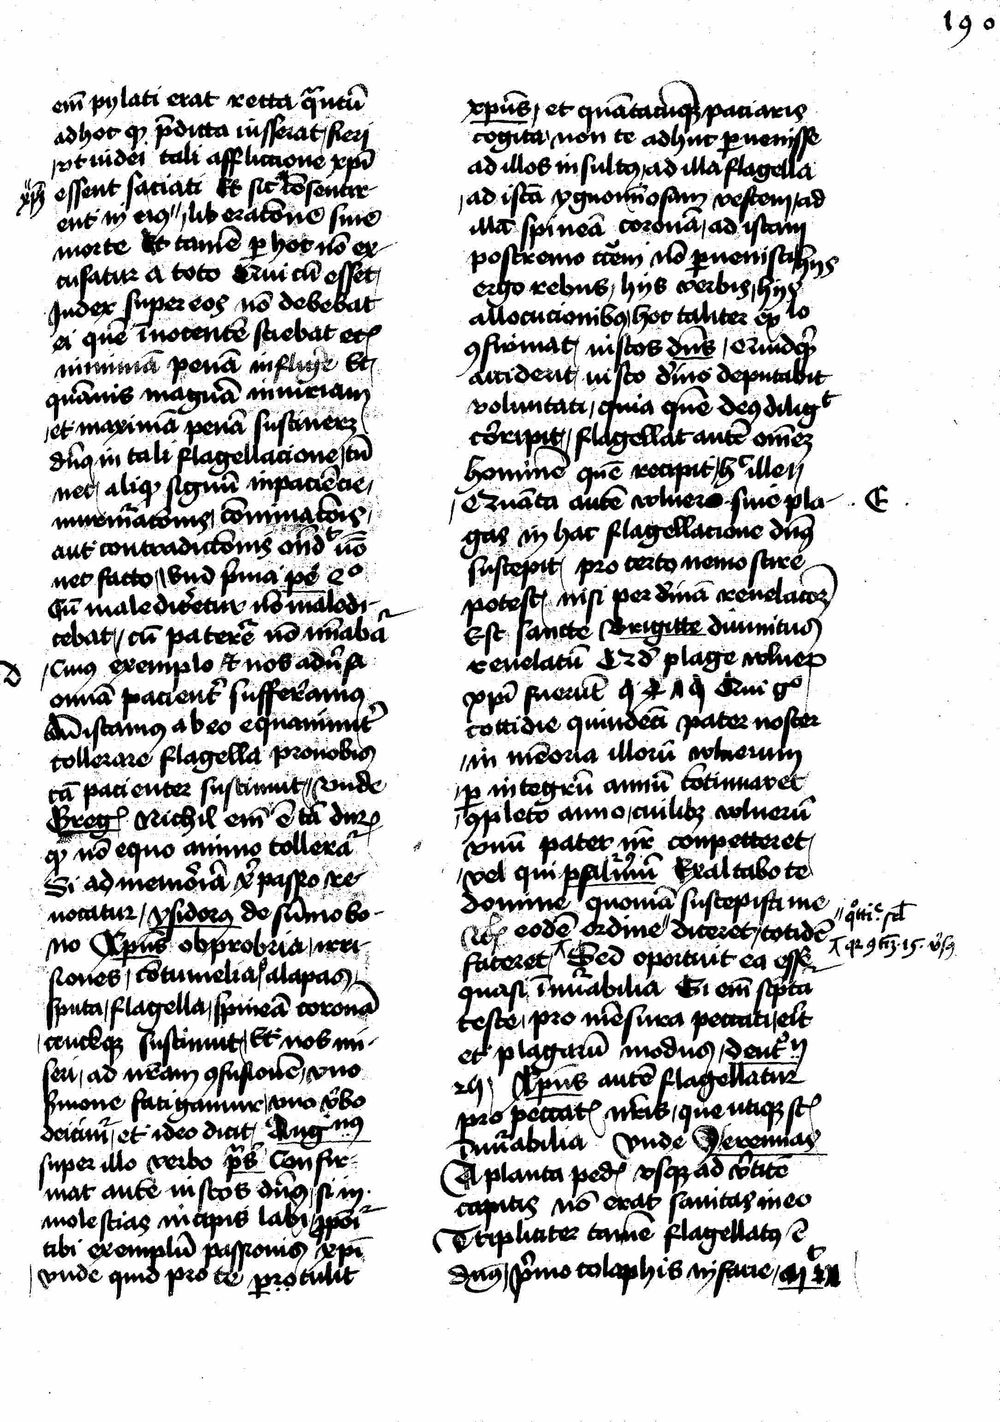 190
em̄ pylati erat recta q̄ntū
ad hoc q̢ p̄dicta iusserat fieri
vt iudei tali afflictione xp̄i
essent saciati Et sic cōsentir
ent in eiꝰ liberacōnē sine
morte Et tamē p̲ hoc nō ex-
cusatur a toto Qui cū esset
Judex super eos nō debebat
ei quē inocentē sciebat etꝫ
minimā penā infligere Et
quāuis magnā iniuriam
et maximā penā sustineret
dn̄s in tali flagellacione tn̄
nec aliq̢ signū inpaciēcie
murmracōnis cōminacōis
aut contradictōnis ond̄t nō
nec facto Vnd p̄ma pe 2o
Cū malediceretur nō maledi-
cebat cū pateretr nō mīabar
D
Cuius exemplo et nos adūsa
omnia pacientr sufferamus
Discamus ab eo equanimitr
tollerare flagella pro nobis
tā pacienter sustinuit vnde
Greg Nichil em̄ ē tā durꝫ
q̢ nō equo animo tolleratr
Si ad memoriā xp̄i passio re
uocatur ysidorꝰ de sūmo bo-
no Xp̄us obprobria irri-
siones cōtumelias alapas
sputa flagella spineā coronā
crucēqꝫ sustinuit Et nos mi-
seri ad nr̄am ꝯfusionē vno
smone fatigamur vno vbo
deicimr et ideo dicit Augꝰnꝰ
super illo verbo ps̄ Confir-
mat autē iustos dn̄s si in
molestias incipis labi ꝓpoītr
tibi exemplū passionis xp̄i
vnde quid pro te protulit
xp̄us et quātacūqꝫ paciaris
cogita non te adhuc peruenisse
ad illos insultꝰ ad illa flagella
ad istā ygnominosam vestem ad
illā spineā coronā ad istam
postremo crucem nō peruenisti hijs
ergo rebus hijs verbis hijs
allocucionibꝰ hoc taliter
ꝯfirmat iustos dn̄s Quidq̢
acciderit iusto diuine deputabit
voluntati quia quē deꝰ diligit
corripit flagellat autē omnē
hominē quē recipit hc ille
Quanta autē vulnera siue pla-
E
gas in hac flagellacione dn̄s
suscepit pro certo nemo scire
potest nisi per diuinā reuelacōꝫ
Est sancte Brigitte diuinitus
reuelatū Qd plage vulnerꝫ
xp̄i fuerūt Qui gо
cottidie quindeci pater noster
in memoria illorū vulnerum
p̲ integrū annū cōtinuaret
ꝯpleto anno cuilibꝫ vulnerū
vnū pater nr̄ conpetteret
vel qui psalmū Exaltabo te
domine quoniā suscepisti me
eodē ordine diceret totidē
faceret Sed oportuit ea esse
quasi innumerabilia Si em̄ scpta
teste pro mēsura peccati erit
et plagarū modus deutro
Xp̄us autē flagellatur
pro peccatis nr̄is que utiqꝫ st
inūrabilia Vnde Jeremias
A planta pedis vsqꝫ ad v̄ticē
capitis nō erat sanitas in eo
Tripliciter tamē flagellatꝰ ē
dn̄s p̄mo colaphis in facie